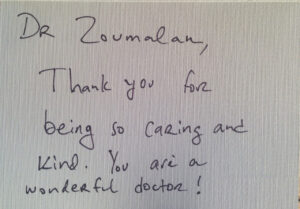 Dr Zoumalan,
Thank you for
being so caring and
kind. You are a
wonderful doctor!